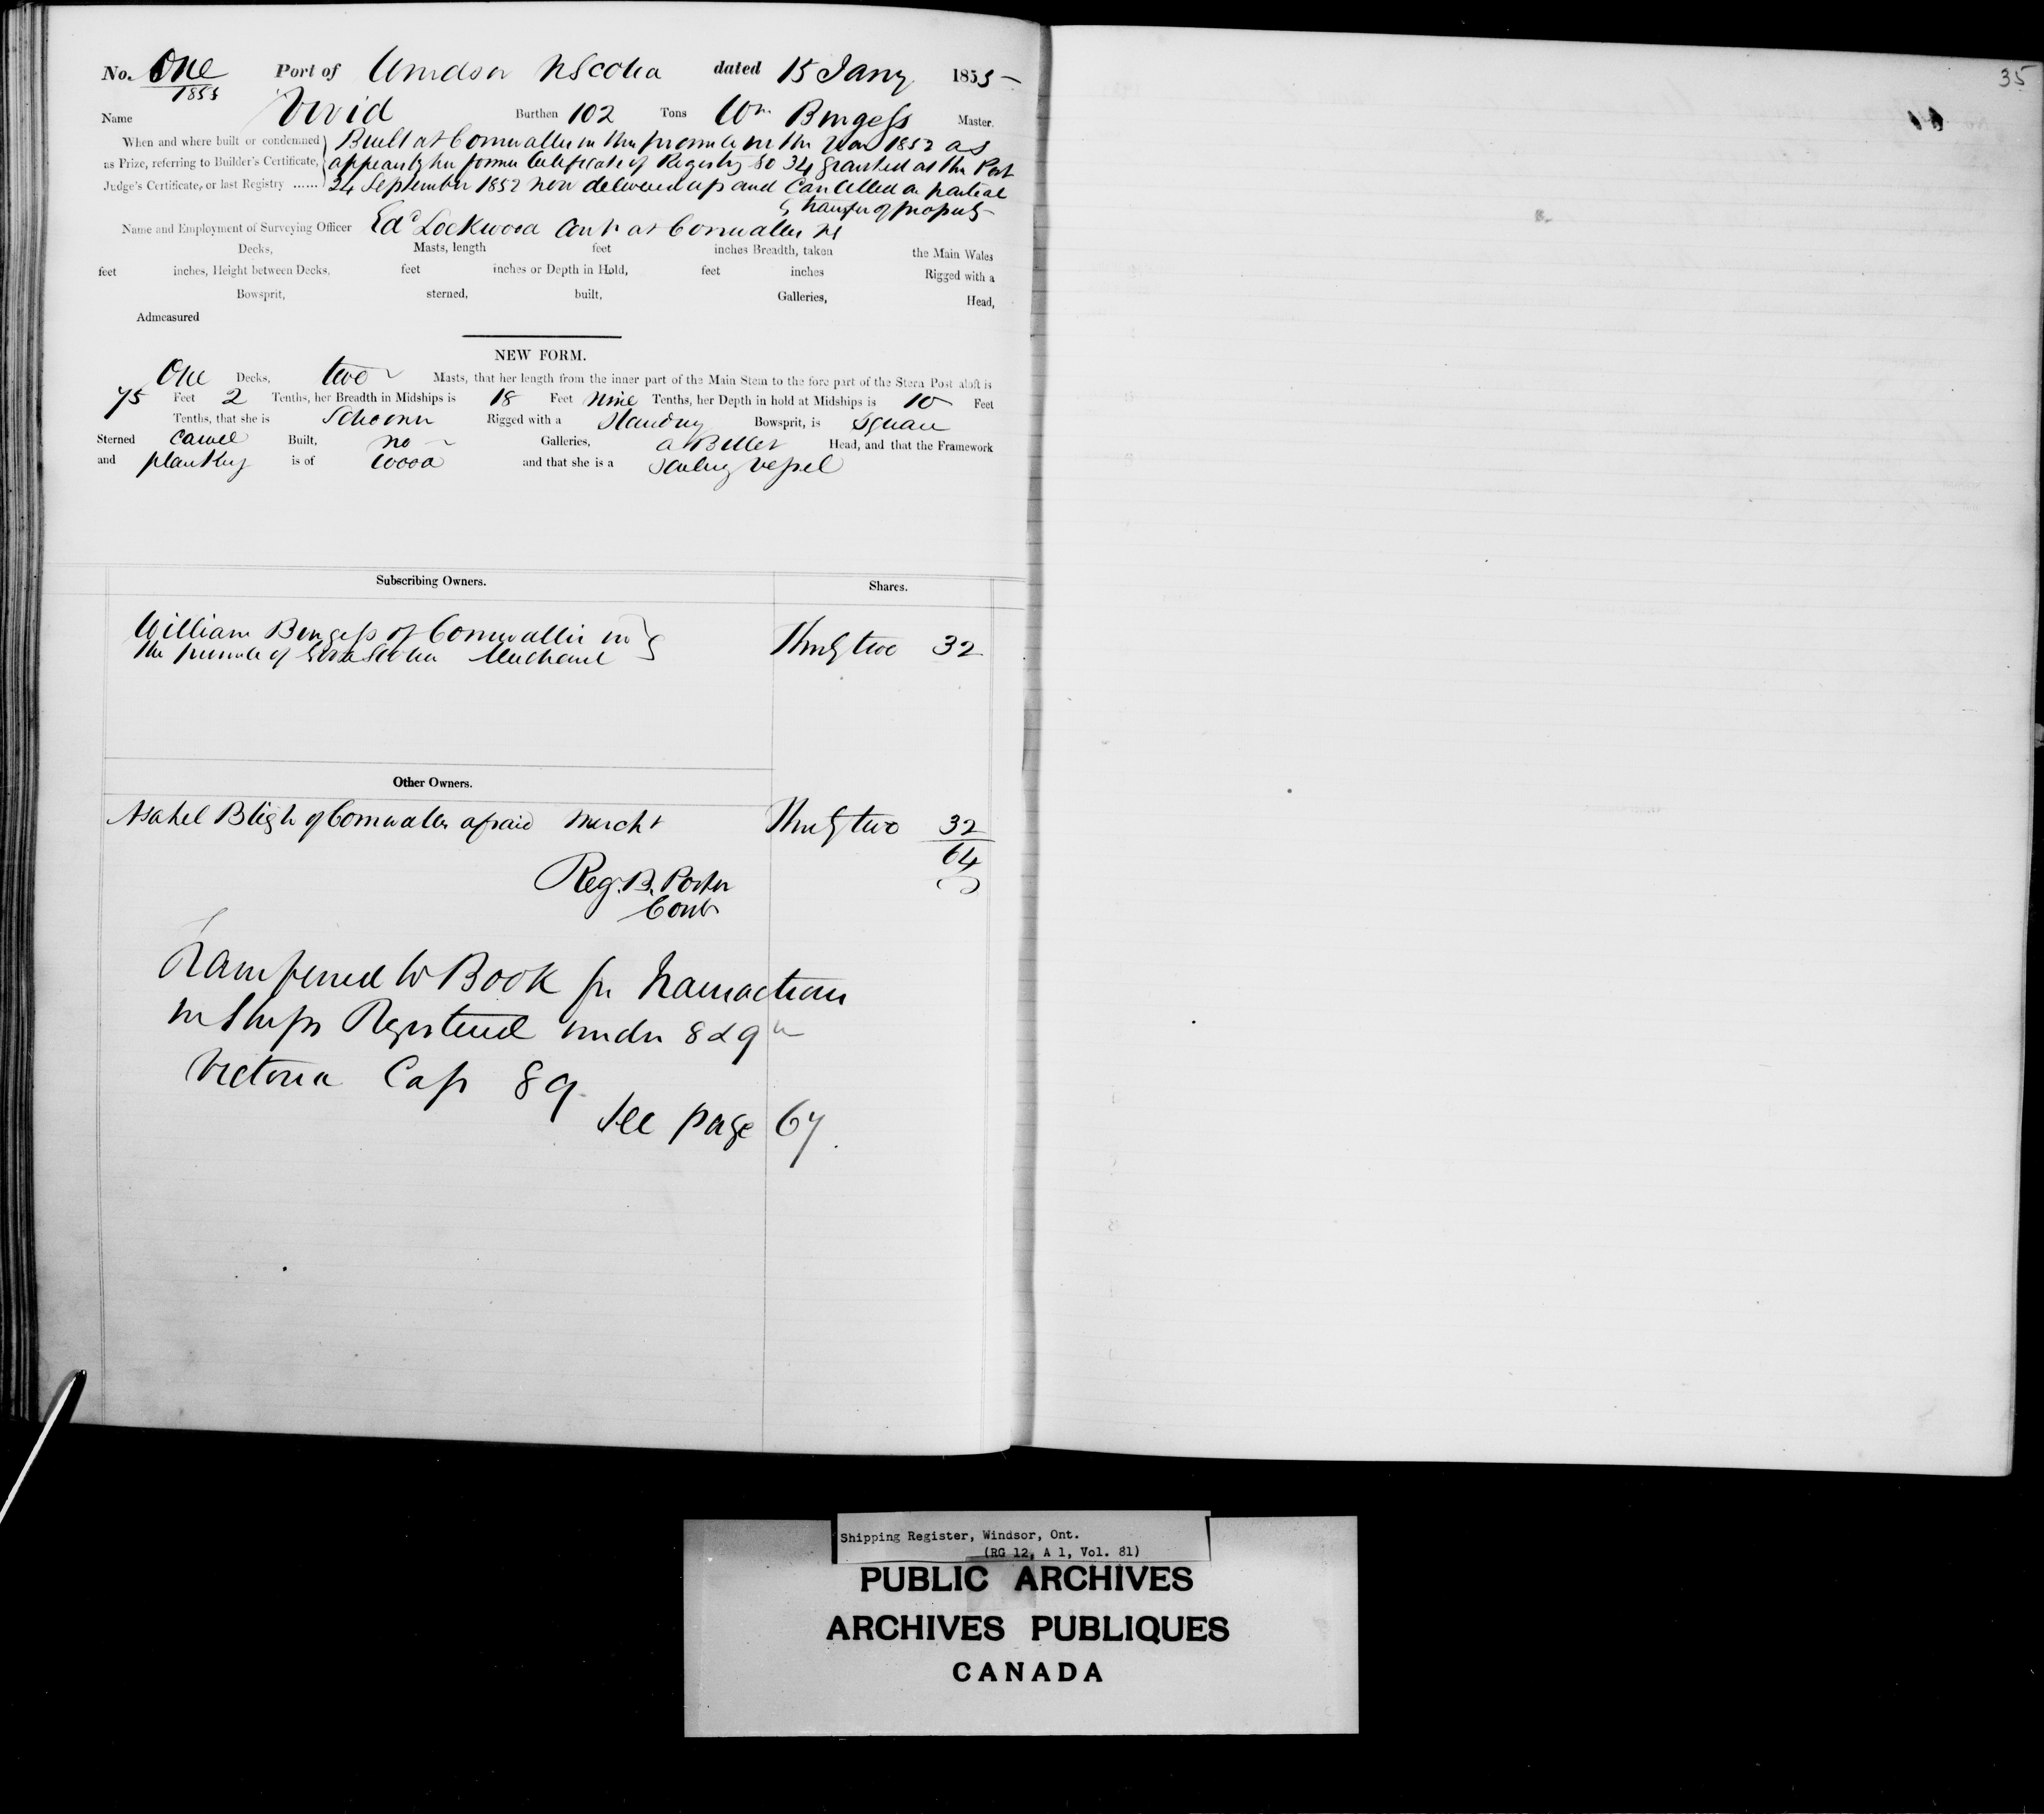 No. One 1855 Port of Windsor NScotia dated 15 Jany 1855
35
Name Vivid Burthen 102 Tons Wm Burgess Master.
When and where built or condemned as Prize, referring to Builder's Certificate, Judge's Certificate, or last Registry ......
Built at Cornwallis in this province in the year 1852 as
appears by her former Certificate of Registry No 34 granted at this Port
24 September 1852 now delivered up and Cancelled on partial
transfer of property
Name and Employment of Surveying Officer Edd Lockwood Contr at Cornwallis NS
Decks, Masts, length feet inches Breadth, taken the Main Wales
feet inches, Height between Decks, feet inches or Depth in Hold, feet inches Rigged with a
Bowsprit, sterned, built, Galleries, Head,
Admeasured
NEW FORM.
One Decks, two Masts, that her length from the inner part of the Main Stem to the fore part of the Stern Post aloft is
75 Feet 2 Tenths, her Breadth in Midships is 18 Feet nine Tenths, her Depth in hold at Midships is 10 Feet
Tenths, that she is Schooner Rigged with a Standing Bowsprit, is Square
Sterned Carvel Built, no Galleries, a Billet Head, and that the Framework
and planking is of Wood and that she is a Sailing Vessel
Subscribing Owners. Shares.
William Burgess of Cornwallis in
the province of Nova Scotia Merchant Thirty two 32
Other Owners.
Asahel Bligh of Cornwallis aforsaid Mercht Thirty two 32
64
Reg. B. Porter
Contr
Transferred to Book for Transactions
in Ships Registered under 8 & 9th
Victoria Cap 89
See page 67
Shipping Register, Windsor, Ont.
(RG 12, A 1, Vol. 81)
PUBLIC ARCHIVES
ARCHIVES PUBLIQUES
CANADA